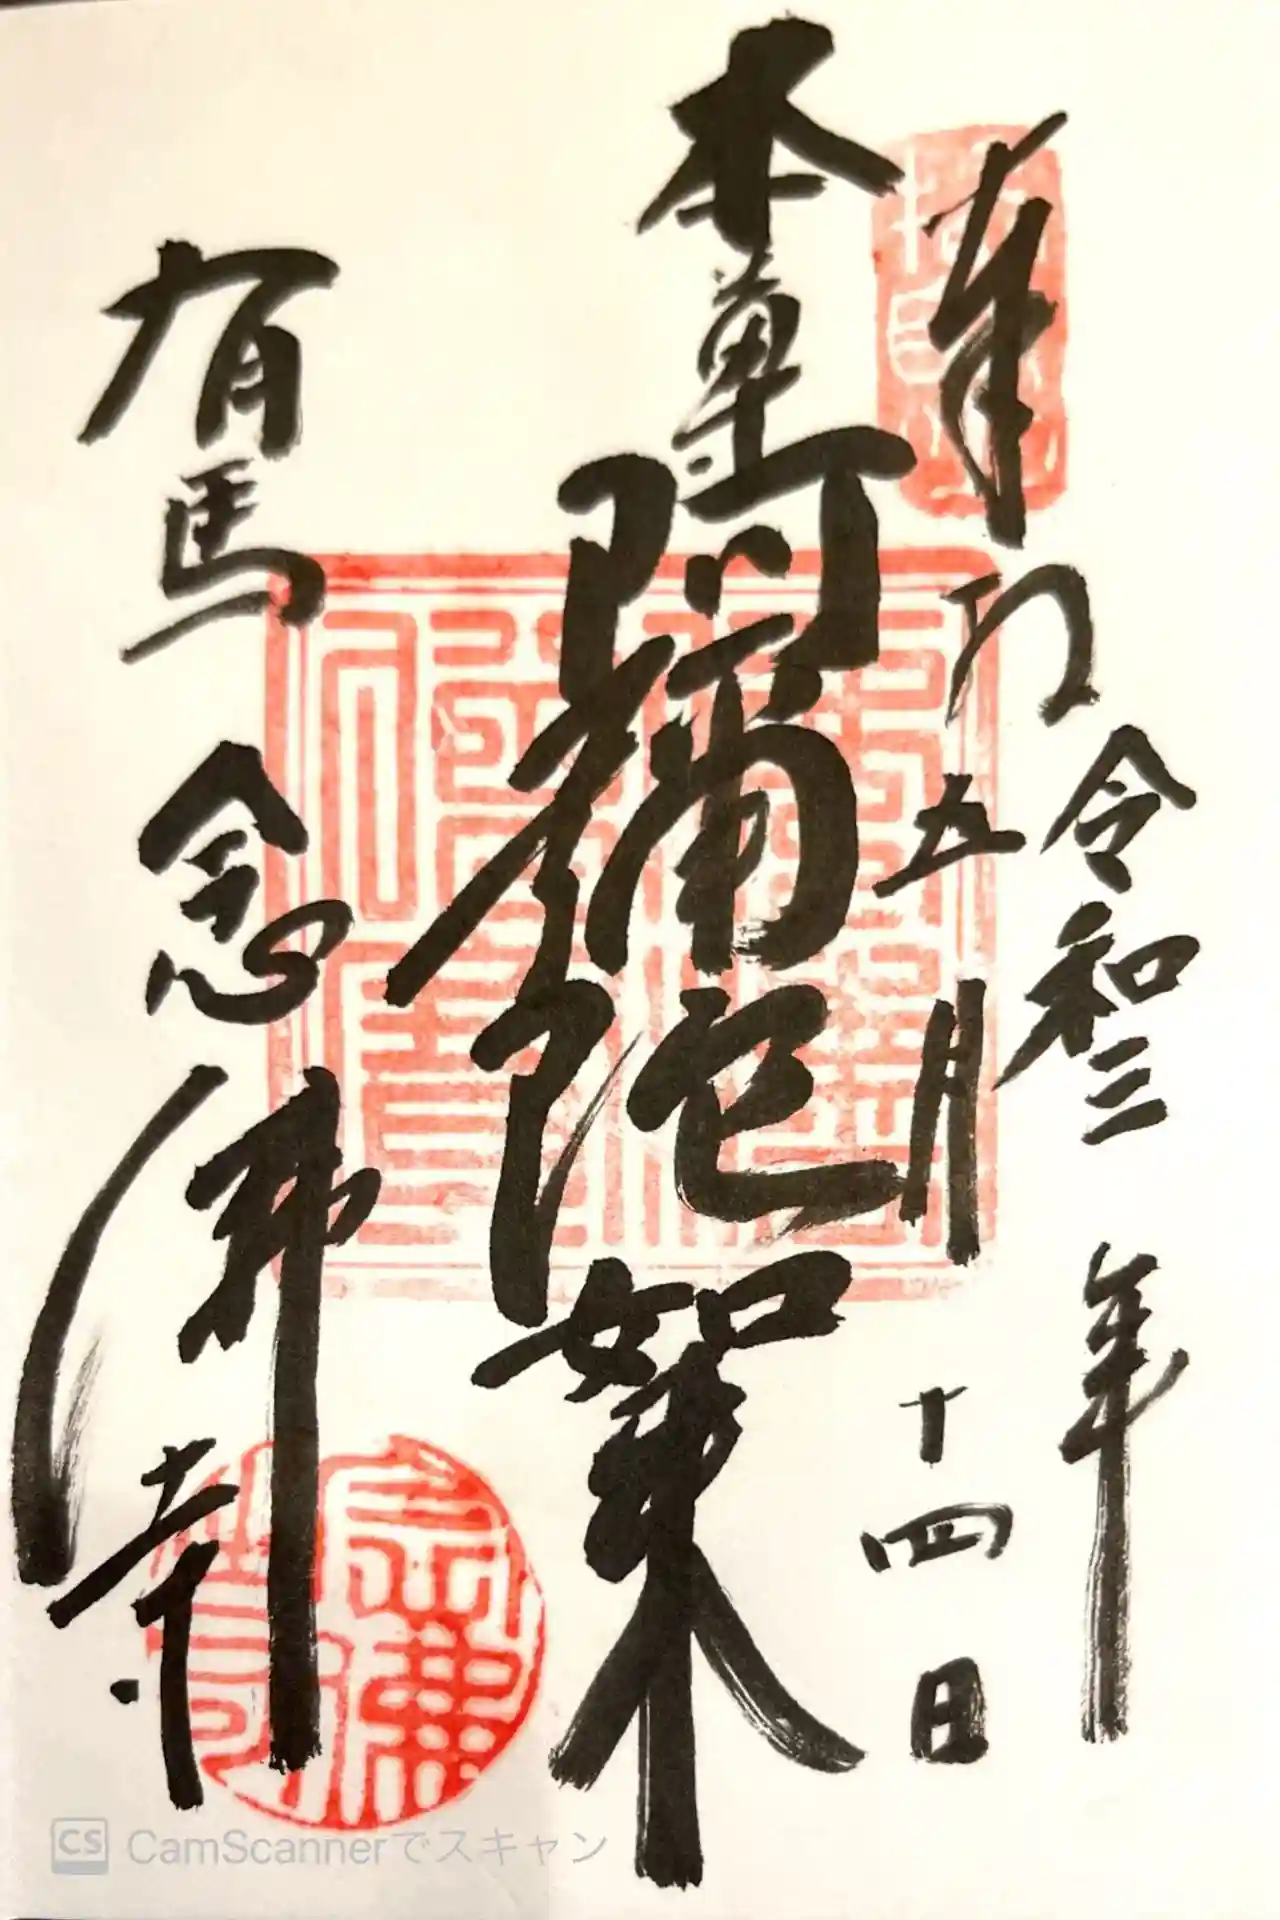 奉拝
令和三年
五月十四日
本尊
阿彌陀如来
有馬
念佛寺
CS CamScannerでスキャン